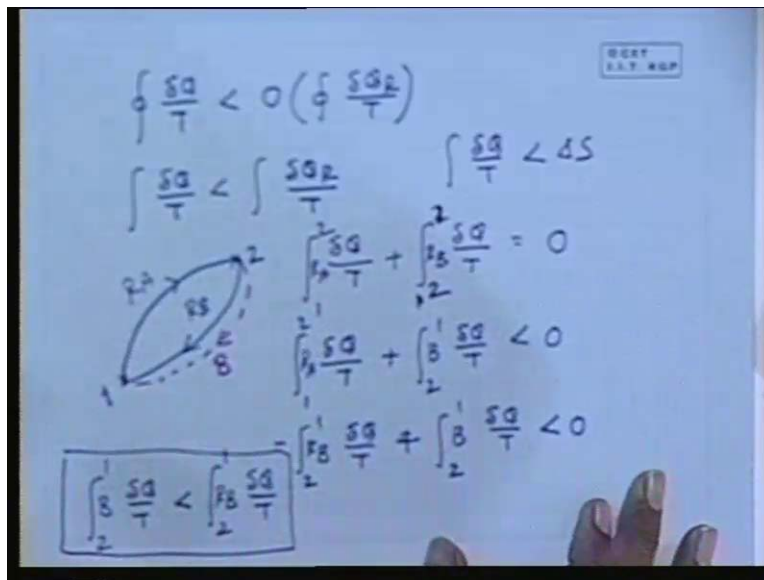 ©CET
I.I.T. KGP
∮ δQ/T < 0 (∮ δQ_R/T)
∫ δQ/T < ∫ δQ_R/T
∫ δQ/T < ΔS
RA
RB
1
2
B
∫_1^2 R_A δQ/T + ∫_2 R_B δQ/T = 0
∫_1^2 R_A δQ/T + ∫_2^1 B δQ/T < 0
- ∫_2^1 R_B δQ/T + ∫_2^1 B δQ/T < 0
∫_2^1 B δQ/T < ∫_2^1 R_B δQ/T